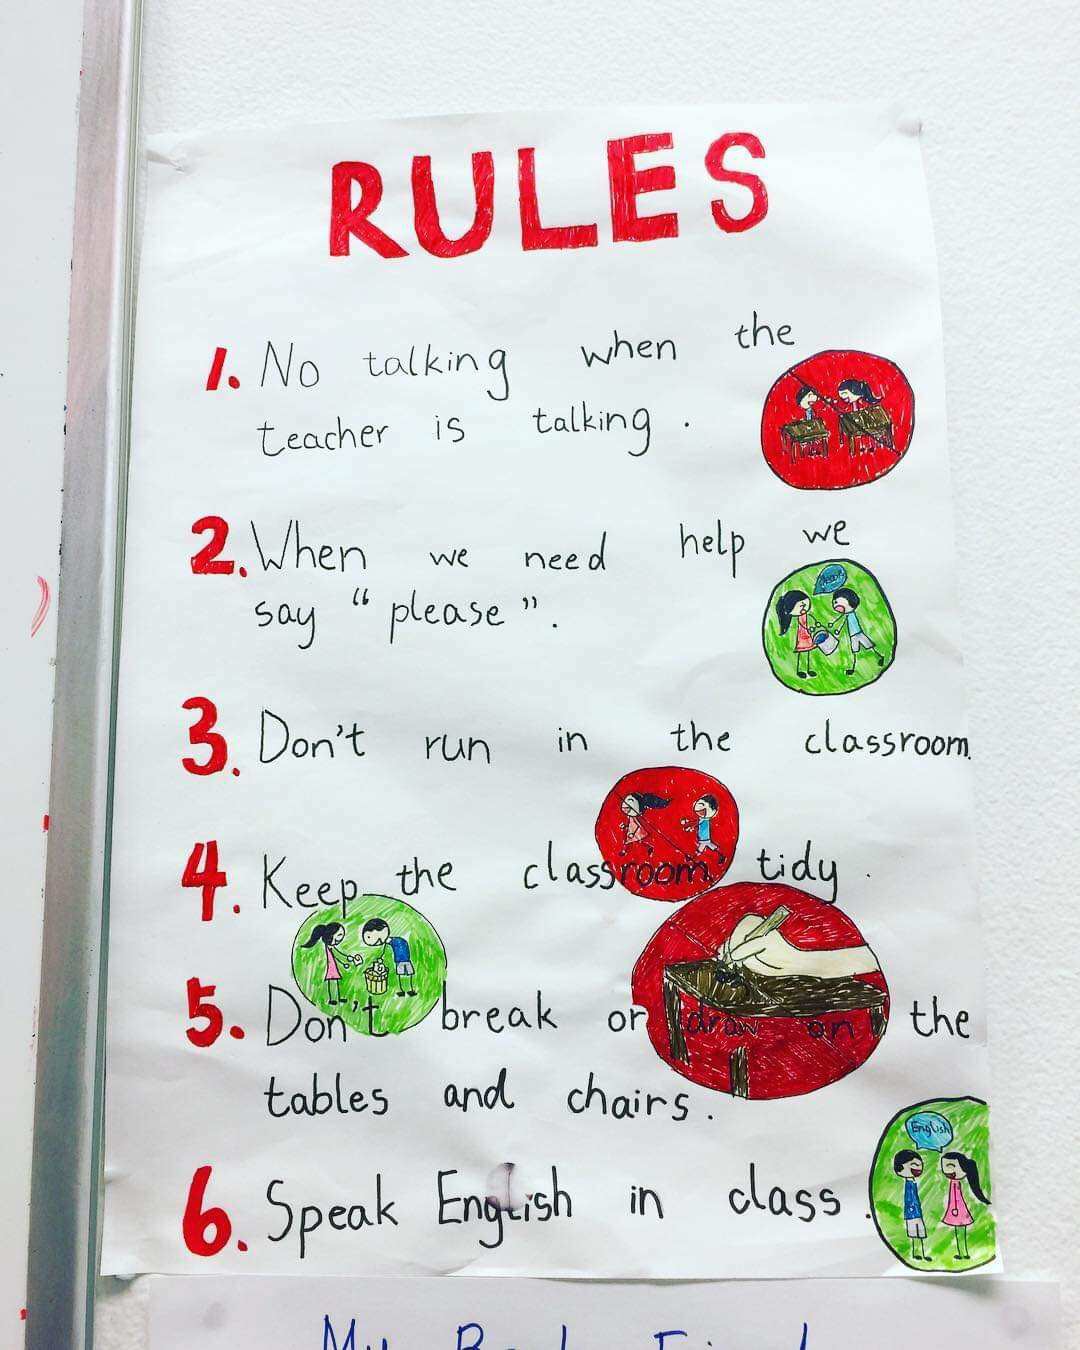 RULES
1. No talking when the
teacher is talking.
2. When we need help we
say "please".
3. Don't run in the classroom.
4. Keep the classroom tidy.
5. Don't break or draw on the
tables and chairs.
English
6. Speak English in class.
My